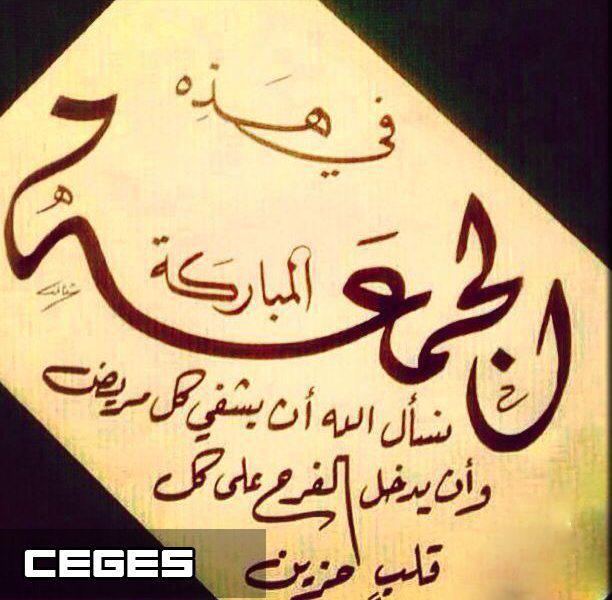 في هَذِه
الجمَعة
المباركَة
نسأل الله أن يشفي كل مريض
وأن يدخل الفرح على كل
قلبٍ حزين
CEGES